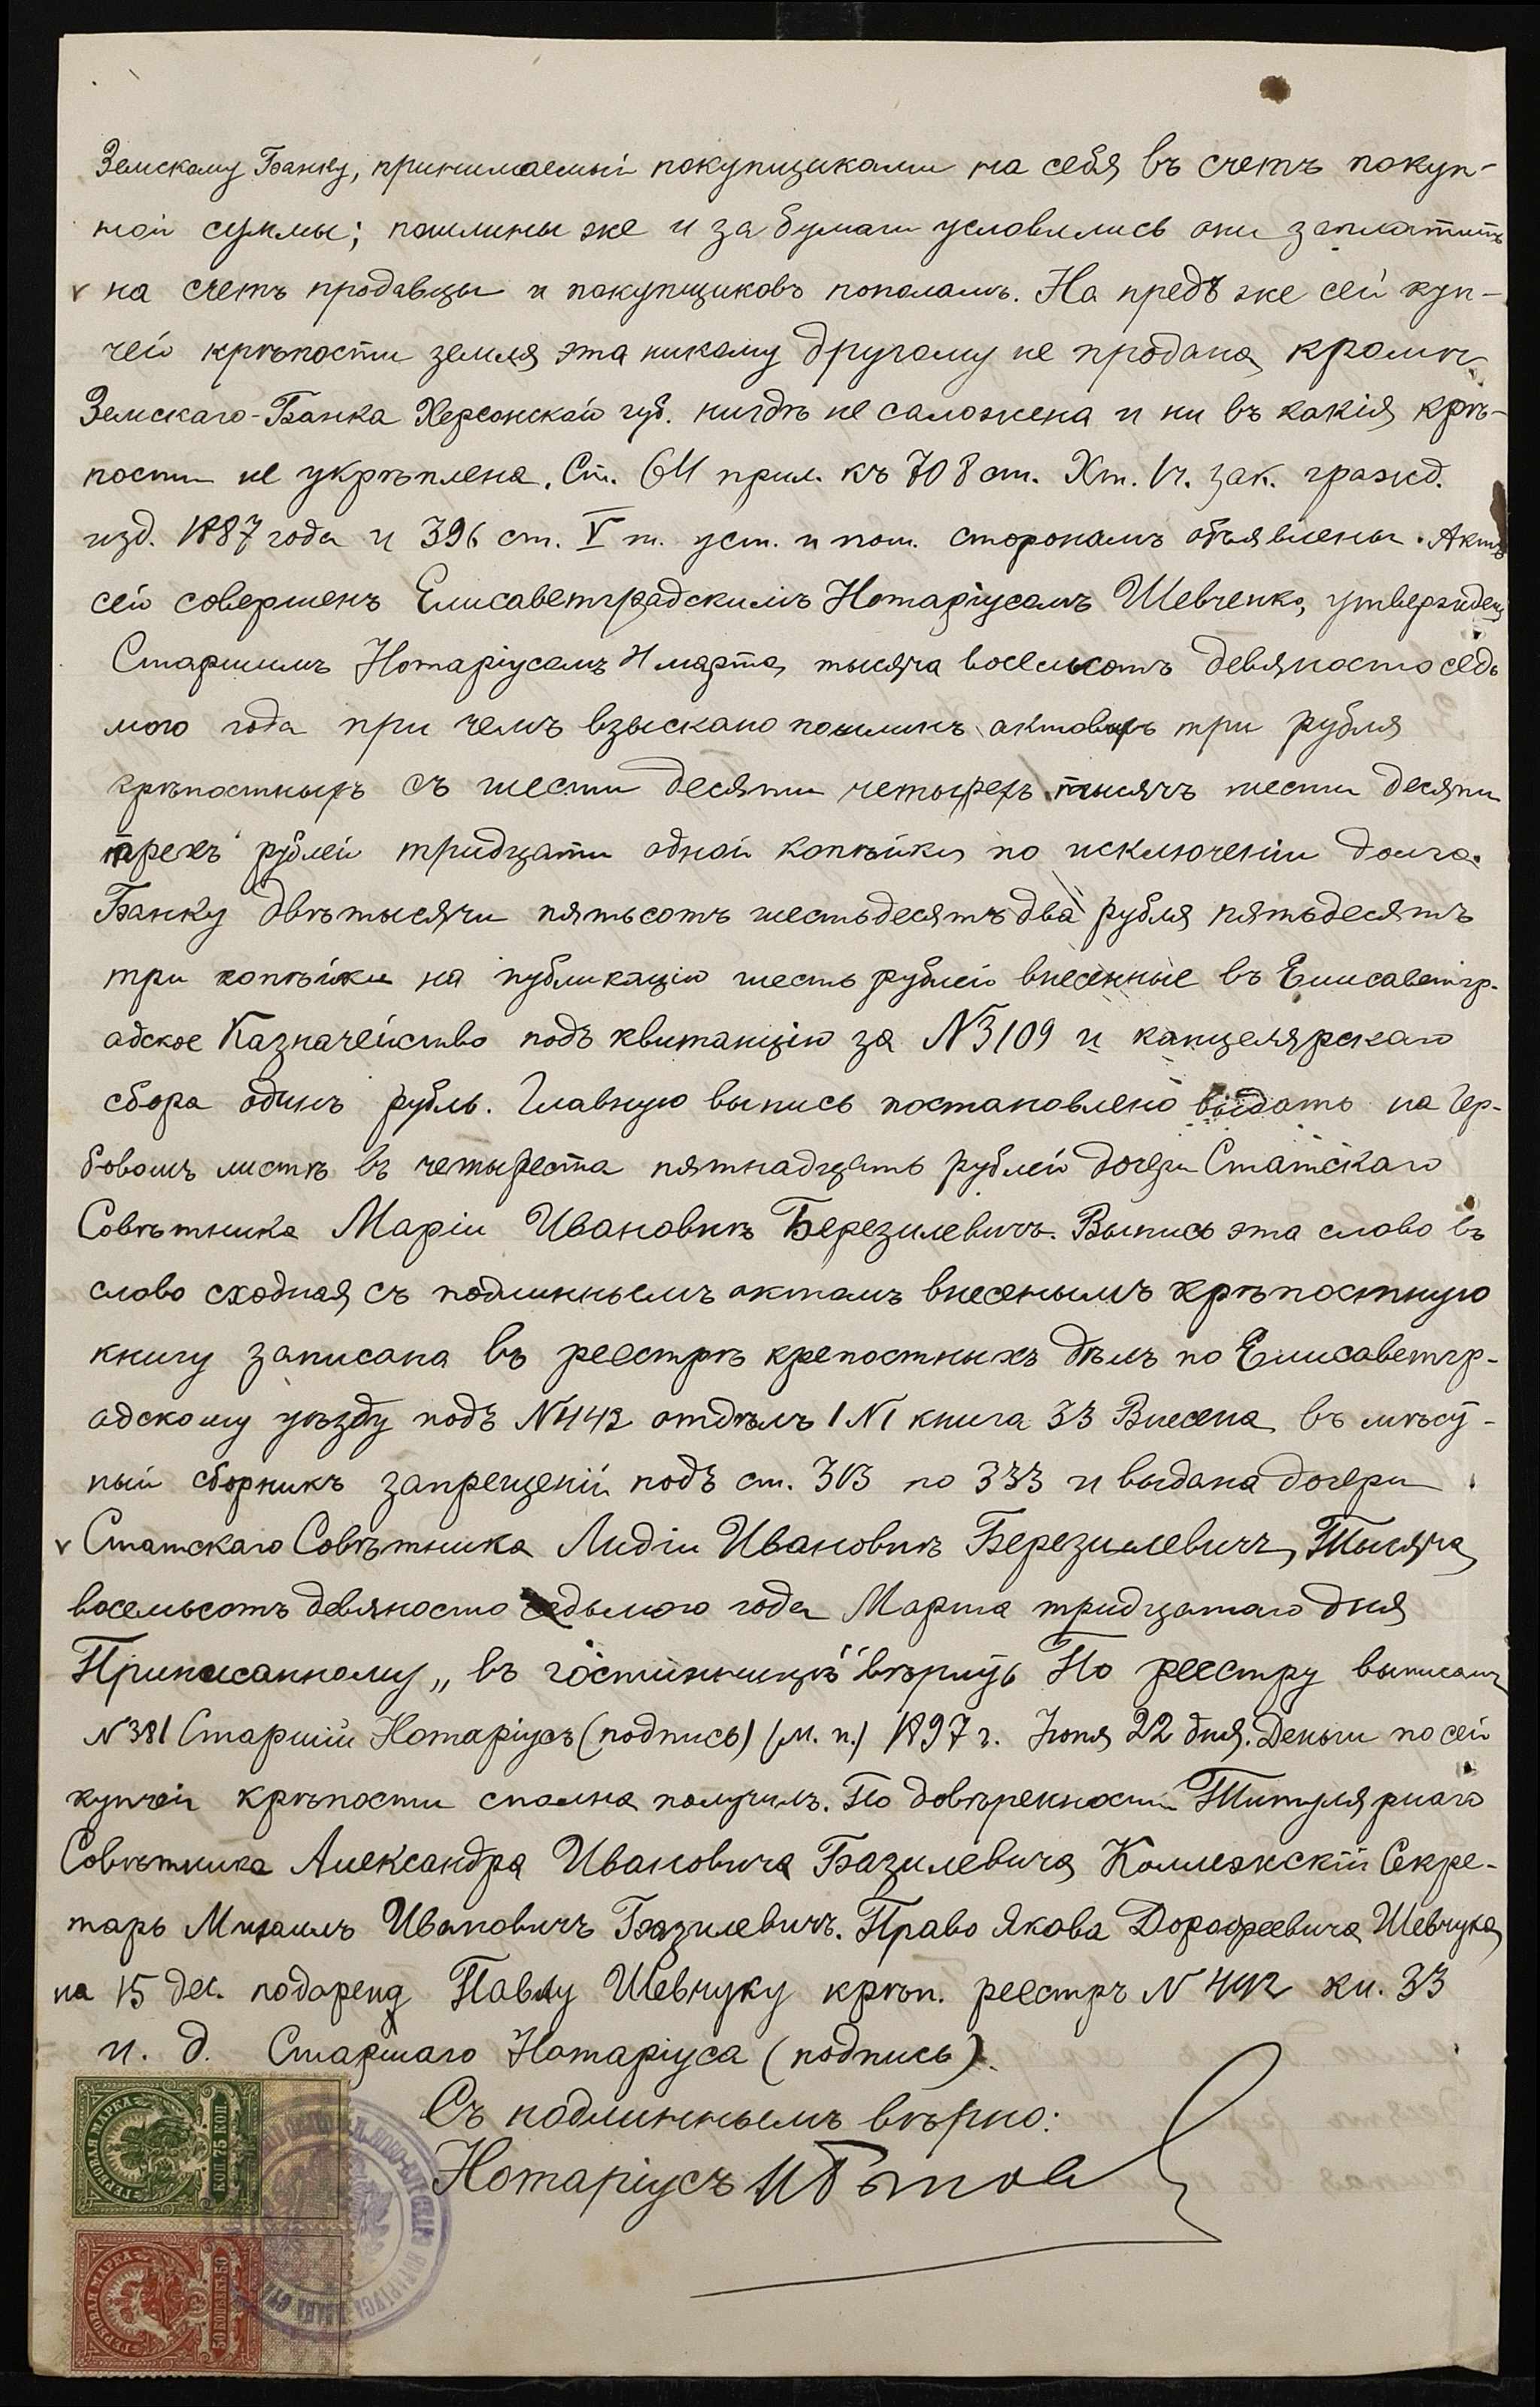 Земскому Банку, принимаемый покупщиками на себя въ счетъ покуп-
ной суммы; пошлины же и за бумаги условились они заплатить
на счетъ продавцы и покупщиковъ пополамъ. На предъ же сей куп-
чей крѣпости земля эта никому другому не продана, кромѣ
Земскаго-Банка Херсонской губ. нигдѣ не саложена и ни въ какія крѣ-
пости не укрѣплена. Ст. 64 прил. къ 708 ст. Хт. 1ч. зак. гражд.
изд. 1887 года и 396 ст. V т. уст. и пош. сторонамъ объявлены. Актъ
сей совершенъ Елисаветградскимъ Нотаріусомъ Шевченко, утвержденъ
Старшимъ Нотаріусомъ 4 марта, тысяча восемьсотъ девяносто седь
мого года при чемъ взыскано пошлинъ актовыхъ три рубля
крѣпостныхъ съ шести десяти четырехъ тысячъ шести десяти
трехъ рублей тридцати одной копѣйки по исключеніи долга
Банку двѣ тысячи пятьсотъ шестьдесятъ два рубля пятьдесятъ
три копѣйки на публикацію шесть рублей внесенные въ Елисаветгр-
адское Казначейство подъ квитанцію за N 3109 и канцелярскаго
сбора одинъ рубль. Главную выпись постановлено выдать на гер-
бовомъ листѣ въ четыреста пятнадцать рублей дочери Статскаго
Совѣтника Маріи Ивановнѣ Березилевичъ. Выпись эта слово въ
слово сходная съ подлиннымъ актомъ внесенымъ крѣпостную
книгу записана въ реестрѣ крепостныхъ дѣлъ по Елисаветгр-
адскому уѣзду подъ N 442 отдѣлъ 1 N 1 книга 33 Внесена въ мѣсу-
ный сборникъ запрещеній подъ ст. 303 по 333 и выдана дочери
Статскаго Совѣтника Лидіи Ивановнѣ Березилевичъ, Тысяча
восемьсотъ девяносто седьмого года Марта тридцатаго дня
Приписанному „въ гостинницѣ" вѣрить По реестру выписамъ
N 381 Старшій Нотаріусъ (подпись) (М. п.) 1897 г. Іюня 22 дня. Деньги по сей
купчей крѣпости сполна получилъ. По довѣренности Титулярнаго
Совѣтника Александра Ивановича Базилевича, Коллежскій Секре-
тарь Михаилъ Ивановичъ Базилевичъ. Право Якова Дорофеевича Шевчука
на 15 дес. подарено Павлу Шевчуку крѣп. реестръ N 442 кн. 33
и. д. Старшаго Нотаріуса (подпись).
Съ подлиннымъ вѣрно:
Нотаріусъ
ГЕРБОВАЯ МАРКА
КОП. 75 КОП.
ГЕРБОВАЯ МАРКА
50 КОПѢЕКЪ 50